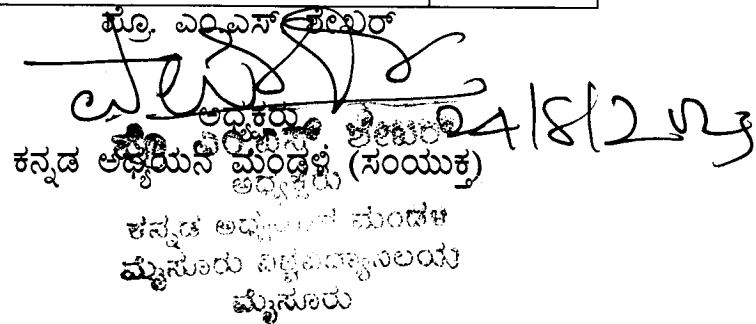 ಪ್ರೊ. ಎಂ.ಎಸ್ ಶೇಖರ್
24/8/2023
ಅಧ್ಯಕ್ಷರು
ಪ್ರೊ ಎಂ ಎಸ್ ಶೇಖರ್
ಕನ್ನಡ ಅಧ್ಯಯನ ಮಂಡಳಿ (ಸಂಯುಕ್ತ)
ಅಧ್ಯಕ್ಷರು
ಕನ್ನಡ ಅಧ್ಯಯನ ಮಂಡಳಿ
ಮೈಸೂರು ವಿಶ್ವವಿದ್ಯಾನಿಲಯ
ಮೈಸೂರು